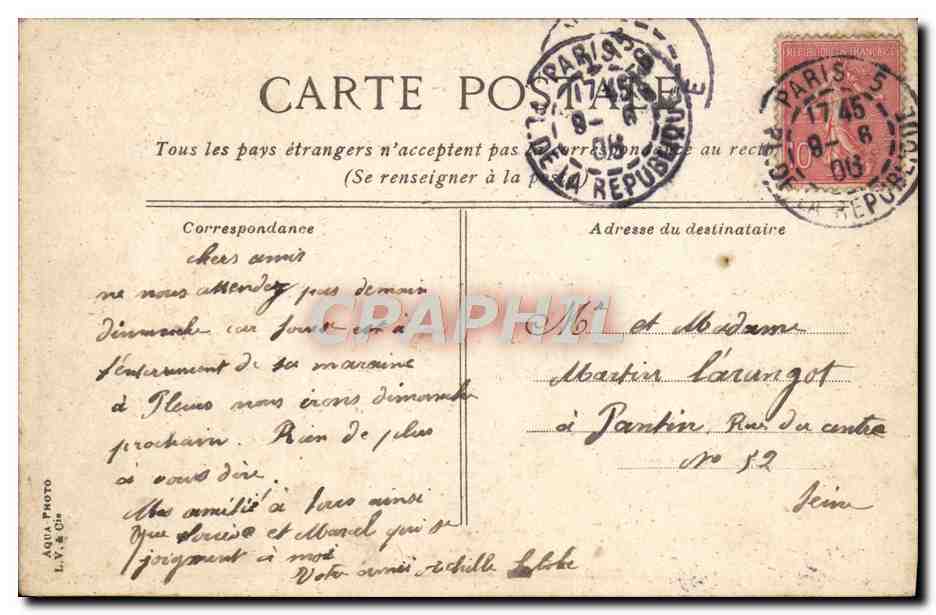 CARTE POSTALE
Tous les pays étrangers n'acceptent pas la correspondance au recto
(Se renseigner à la poste)
Correspondance
Adresse du destinataire
chers amis
ne nous attendez pas demain
dimanche car est à
l'enterrement de sa marraine
à nous irons dimanche
prochain. Rien de plus
a vous dire
Mes amitié à tous ainsi
que Louise et Marcel qui se
joignent à moi
Votre ami Achille
Mr et Madame
Martin
à Pantin, Rue du centre
No 52
Seine
REPUBLIQUE FRANCAISE
10
PARIS 5
17 45
9 - 6
06
PL. DE LA REPUBLIQUE
PARIS 5
17 45
9 - 6
06
PL. DE LA REPUBLIQUE
AQUA PHOTO
L. V. & Cie
CPAPHIL